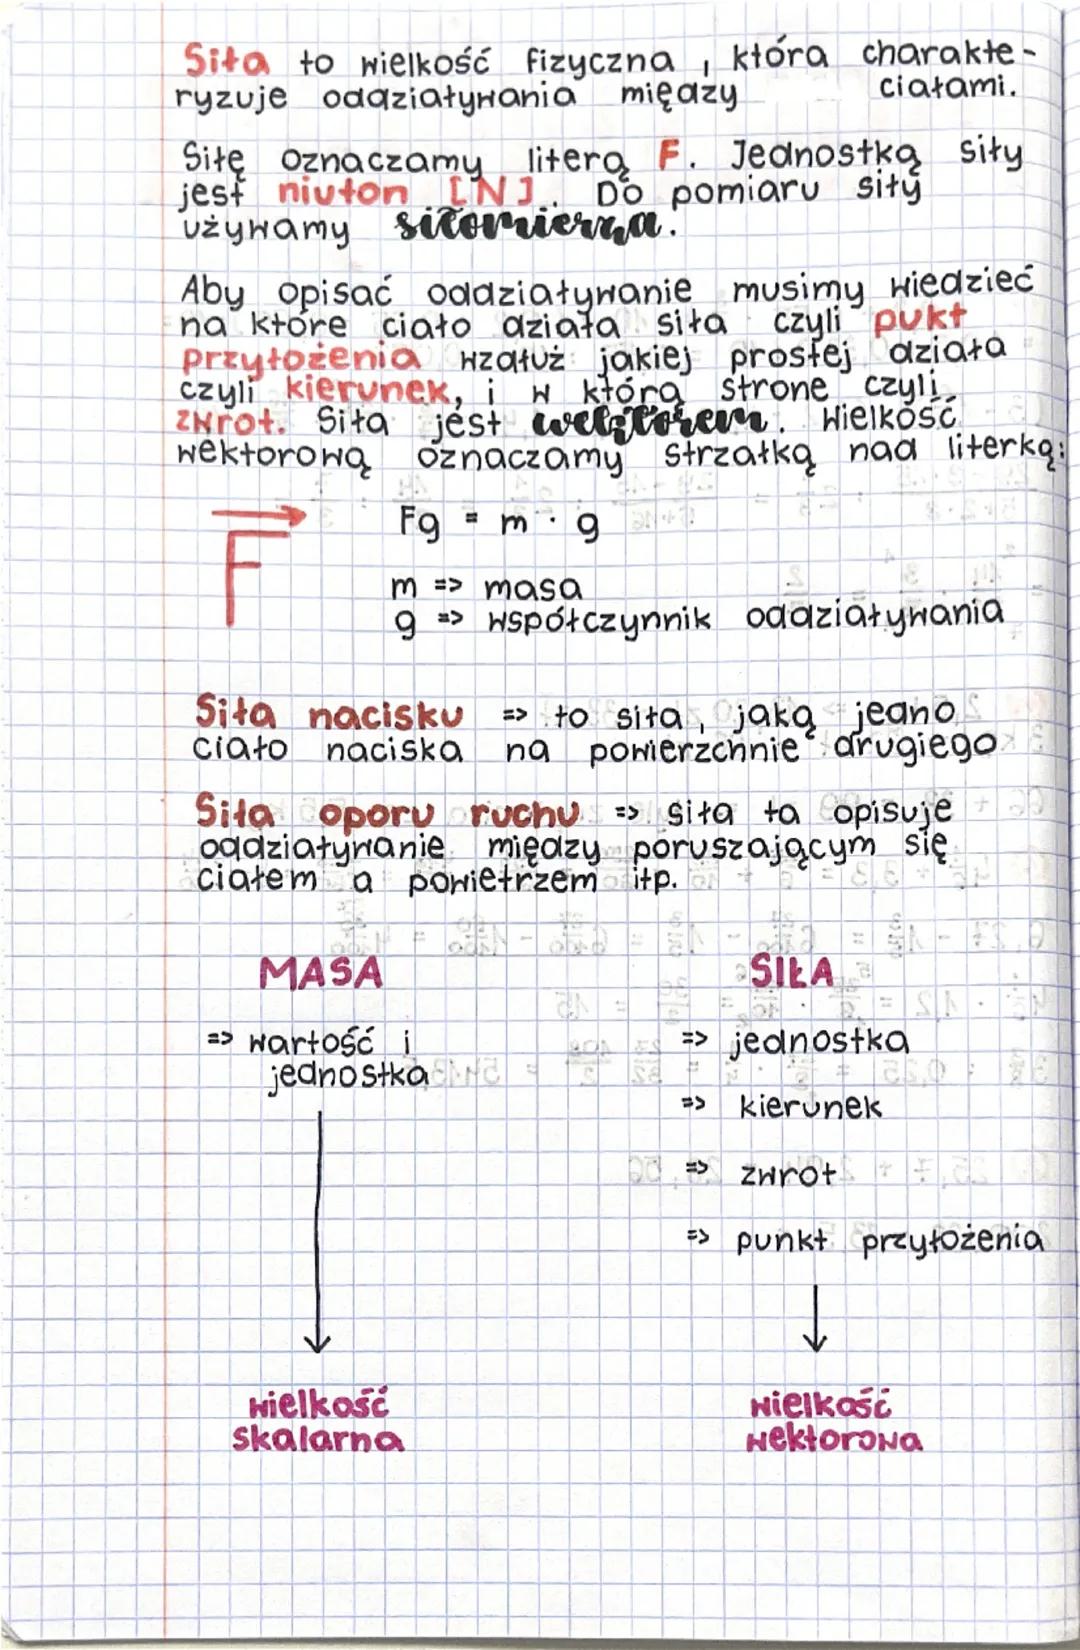 Siła to wielkość fizyczna, która charakte-
ryzuje oddziaływania między ciałami.
Siłę oznaczamy literą F. Jednostką siły
jest niuton [N]. Do pomiaru siły
używamy siłomierza.
Aby opisać oddziaływanie musimy wiedzieć
na które ciało działa siła czyli pukt
przyłożenia wzdłuż jakiej prostej działa
czyli kierunek, i w którą strone czyli
zwrot. Siła jest wektorem. Wielkość
wektorową oznaczamy strzałką nad literką:
F
Fg = m · g
m => masa
g => współczynnik oddziaływania
Siła nacisku => to siła, jaką jedno
ciało naciska na powierzchnie drugiego
Siła oporu ruchu => siła ta opisuje
oddziaływanie między poruszającym się
ciałem a powietrzem itp.
MASA
=> wartość i
jednostka
wielkość
skalarna
SIŁA
=> jednostka
=> kierunek
=> zwrot
=> punkt przyłożenia
wielkość
wektorowa